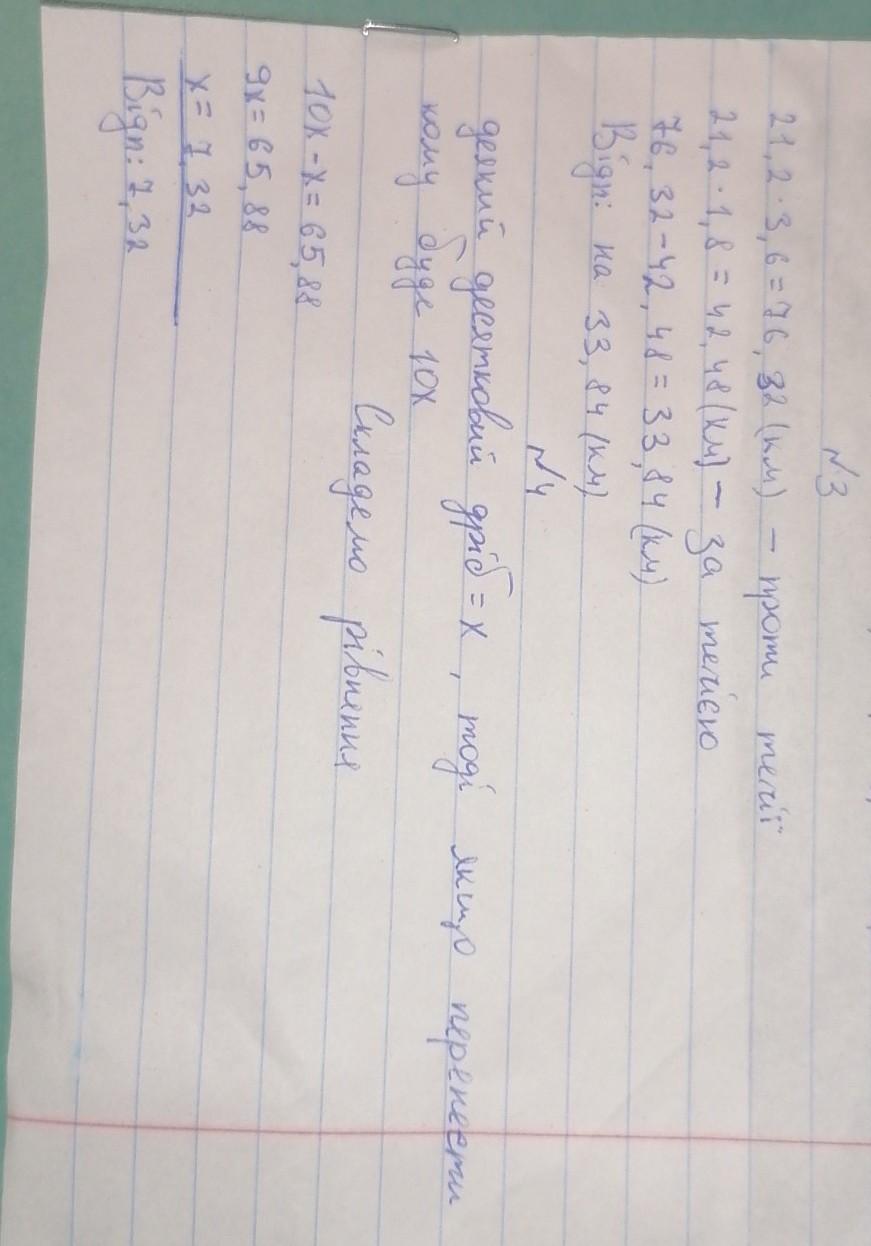 №3
21,2·3,6=76,32(км) – проти течії
21,2·1,8=42,48(км) – за течією
76,32-42,48=33,84(км)
Відп: на 33,84(км)
№4
деякий десятковий дріб=x, тоді якщо перенести
кому буде 10x
Складемо рівняння
10x-x=65,88
9x=65,88
x=7,32
Відп: 7,32